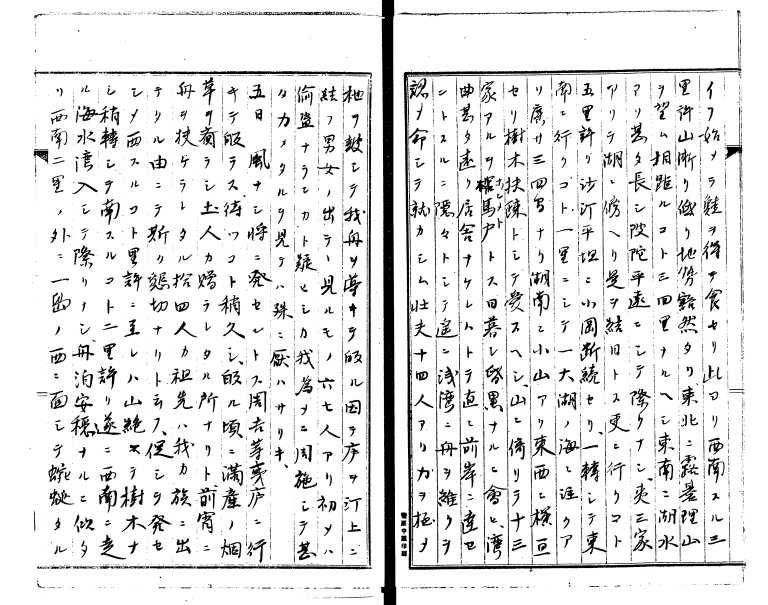 イフ始メテ鮭ヲ得テ食セリ此ヨリ西南スル三
里許山漸ク低ク地勢豁然タリ東北ニ霧曇理山
ヲ望ム相距ルコト三四里ナルヘシ東南ニ湖水
アリ甚タ長シ陂陀平遠ニシテ際ナシ夷三家
アリテ湖ニ傍ヘリ是ヲ結日トス更ニ行クコト
五里許リ沙汀平坦ニ小岡断続セリ一轉シテ東
南ニ行クコト一里ニシテ一大湖ノ海ニ注クア
リ廣サ三四町ナリ湖南ニ小山アリ東西ニ横亘
セリ樹木扶疎トシテ愛スヘシ山ニ倚リテ十三
家アルヲ馬戸トス日暮シ昏黒ナルニ會ヒ湾
曲甚タ遠ク居舎ナケレハトテ直ニ前岸ニ達セ
ントスルニ隠々トシテ遥ニ浅湾ニ舟ヲ維クヲ
認メ命シテ就カシム壮夫十四人アリカヲ極メ
柂ヲ鼓シテ我舟ヲ導キテ皈ル因テ序ヲ汀上ニ
結フ男女ノ出テ見ルモノ六七人アリ初メハ
偸盗ナランカト疑ヒシカ我為メニ周旋シテ甚
タカメタルヲ見テハ殊ニ厭ハサリキ
五日 風ナシ将ニ発セントス周吉等夷庐ニ行
キテ皈ラス待ツコト稍久シ皈ル頃ニ満産ノ烟
草ヲ齎ラシ土人カ贈ラレタル所ナリト前宵ニ
舟ヲ扶ケラトタル拾四人カ祖先ハ我カ族ニ出
テタル由ニテ斯ク懇切ナリト云フ促シテ発セ
シメ西スルコト里許ニ至レハ山絶ヱテ樹木ナ
シ稍轉シテ南スルコト二里許リ遂ニ西南ニ走
ル海水湾入シテ際リナシ舟泊安穏ナルニ似タ
リ西南二里ノ外ニ一島ノ西ニ面シテ蜿蜒タル